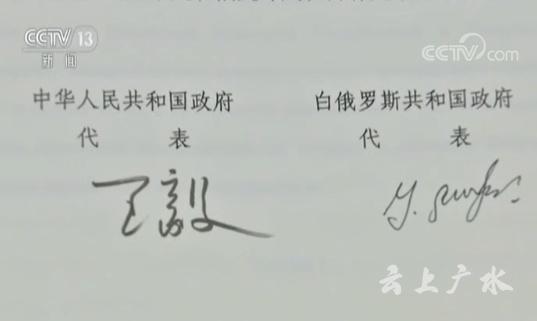 CCTV 13
新闻
CCTV.com
中华人民共和国政府
代 表
王毅
白俄罗斯共和国政府
代 表
云上广水